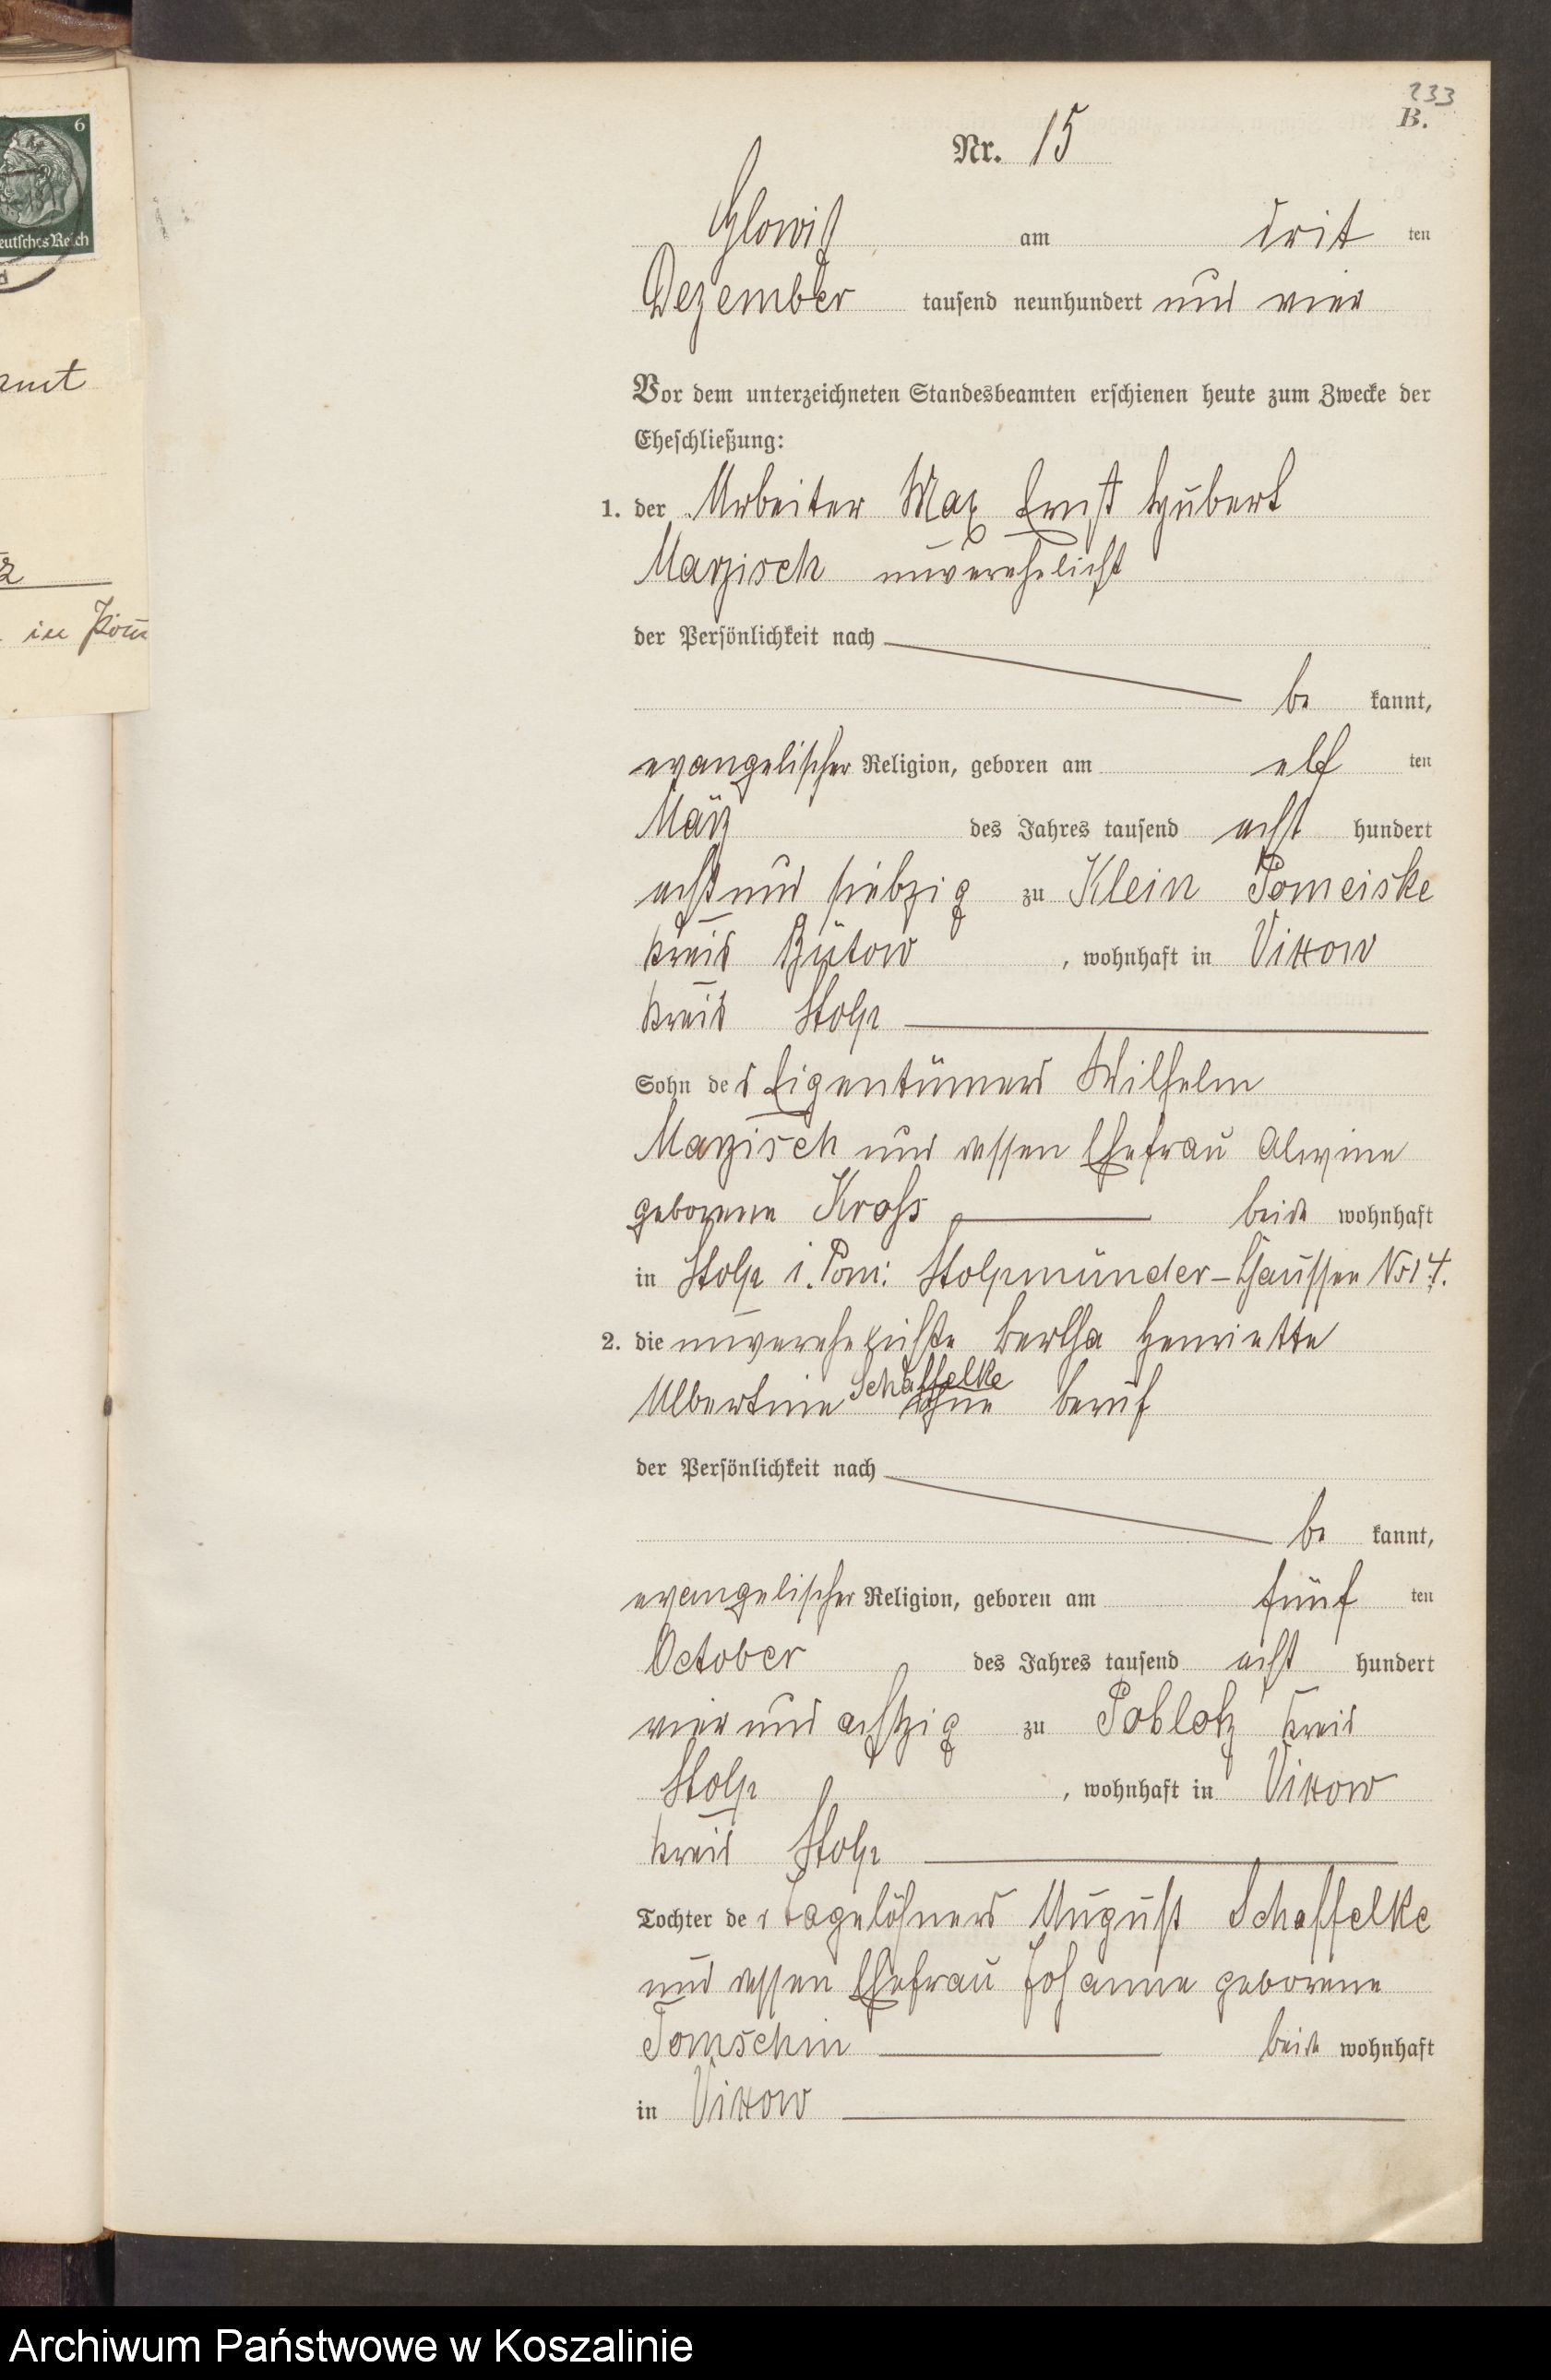 233
B.
Nr. 15
Glowitz am drit ten
Dezember tausend neunhundert und vier
Vor dem unterzeichneten Standesbeamten erschienen heute zum Zwecke der
Eheschließung:
1. der Arbeiter Max Ernst Hubert
Marzisch unverehelicht
der Persönlichkeit nach
be kannt,
evangelischer Religion, geboren am elf ten
März des Jahres tausend acht hundert
acht und siebzig zu Klein Pomeiske
Kreis Bütow, wohnhaft in Vixow
Kreis Stolp
Sohn des Eigentümers Wilhelm
Marzisch und dessen Ehefrau Alwine
geborene Krohs beide wohnhaft
in Stolp i. Pom: Stolpmünder-Chaussee No 14.
2. die unverehelichte Bertha Henriette
Albertine Schaffelke ohne Beruf
der Persönlichkeit nach
be kannt,
evangelischer Religion, geboren am fünf ten
October des Jahres tausend acht hundert
vier und achtzig zu Poblotz Kreis
Stolp, wohnhaft in Vixow
Kreis Stolp
Tochter des Tagelöhners August Schaffelke
und dessen Ehefrau Johanne geborene
Tomschin beide wohnhaft
in Vixow
6
Deutsches Reich
in Pom
Archiwum Państwowe w Koszalinie